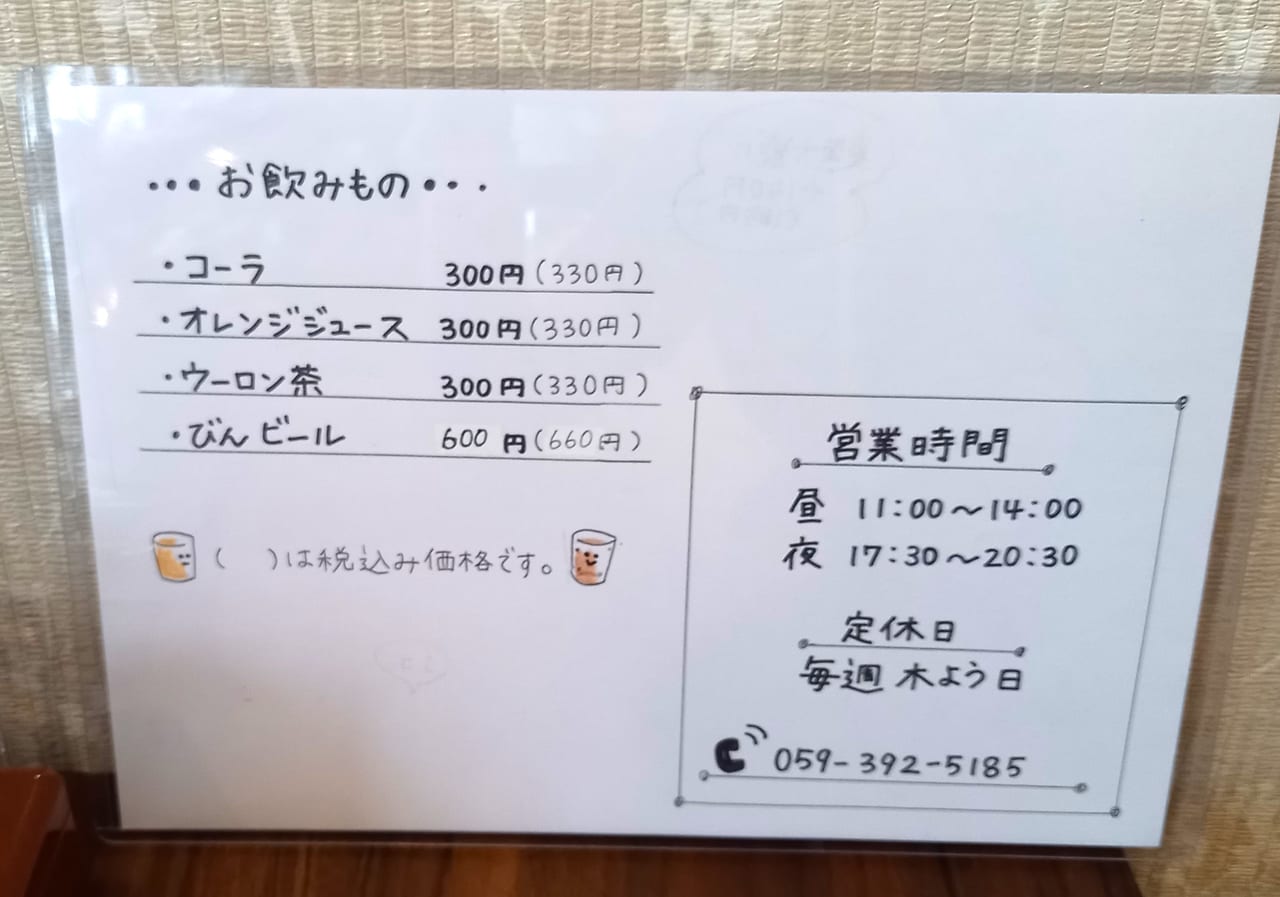 ・・・お飲みもの・・・
・コーラ 300円(330円)
・オレンジジュース 300円(330円)
・ウーロン茶 300円(330円)
・びんビール 600円(660円)
(　)は税込み価格です。
営業時間
昼 11:00〜14:00
夜 17:30〜20:30
定休日
毎週 木よう日
059-392-5185